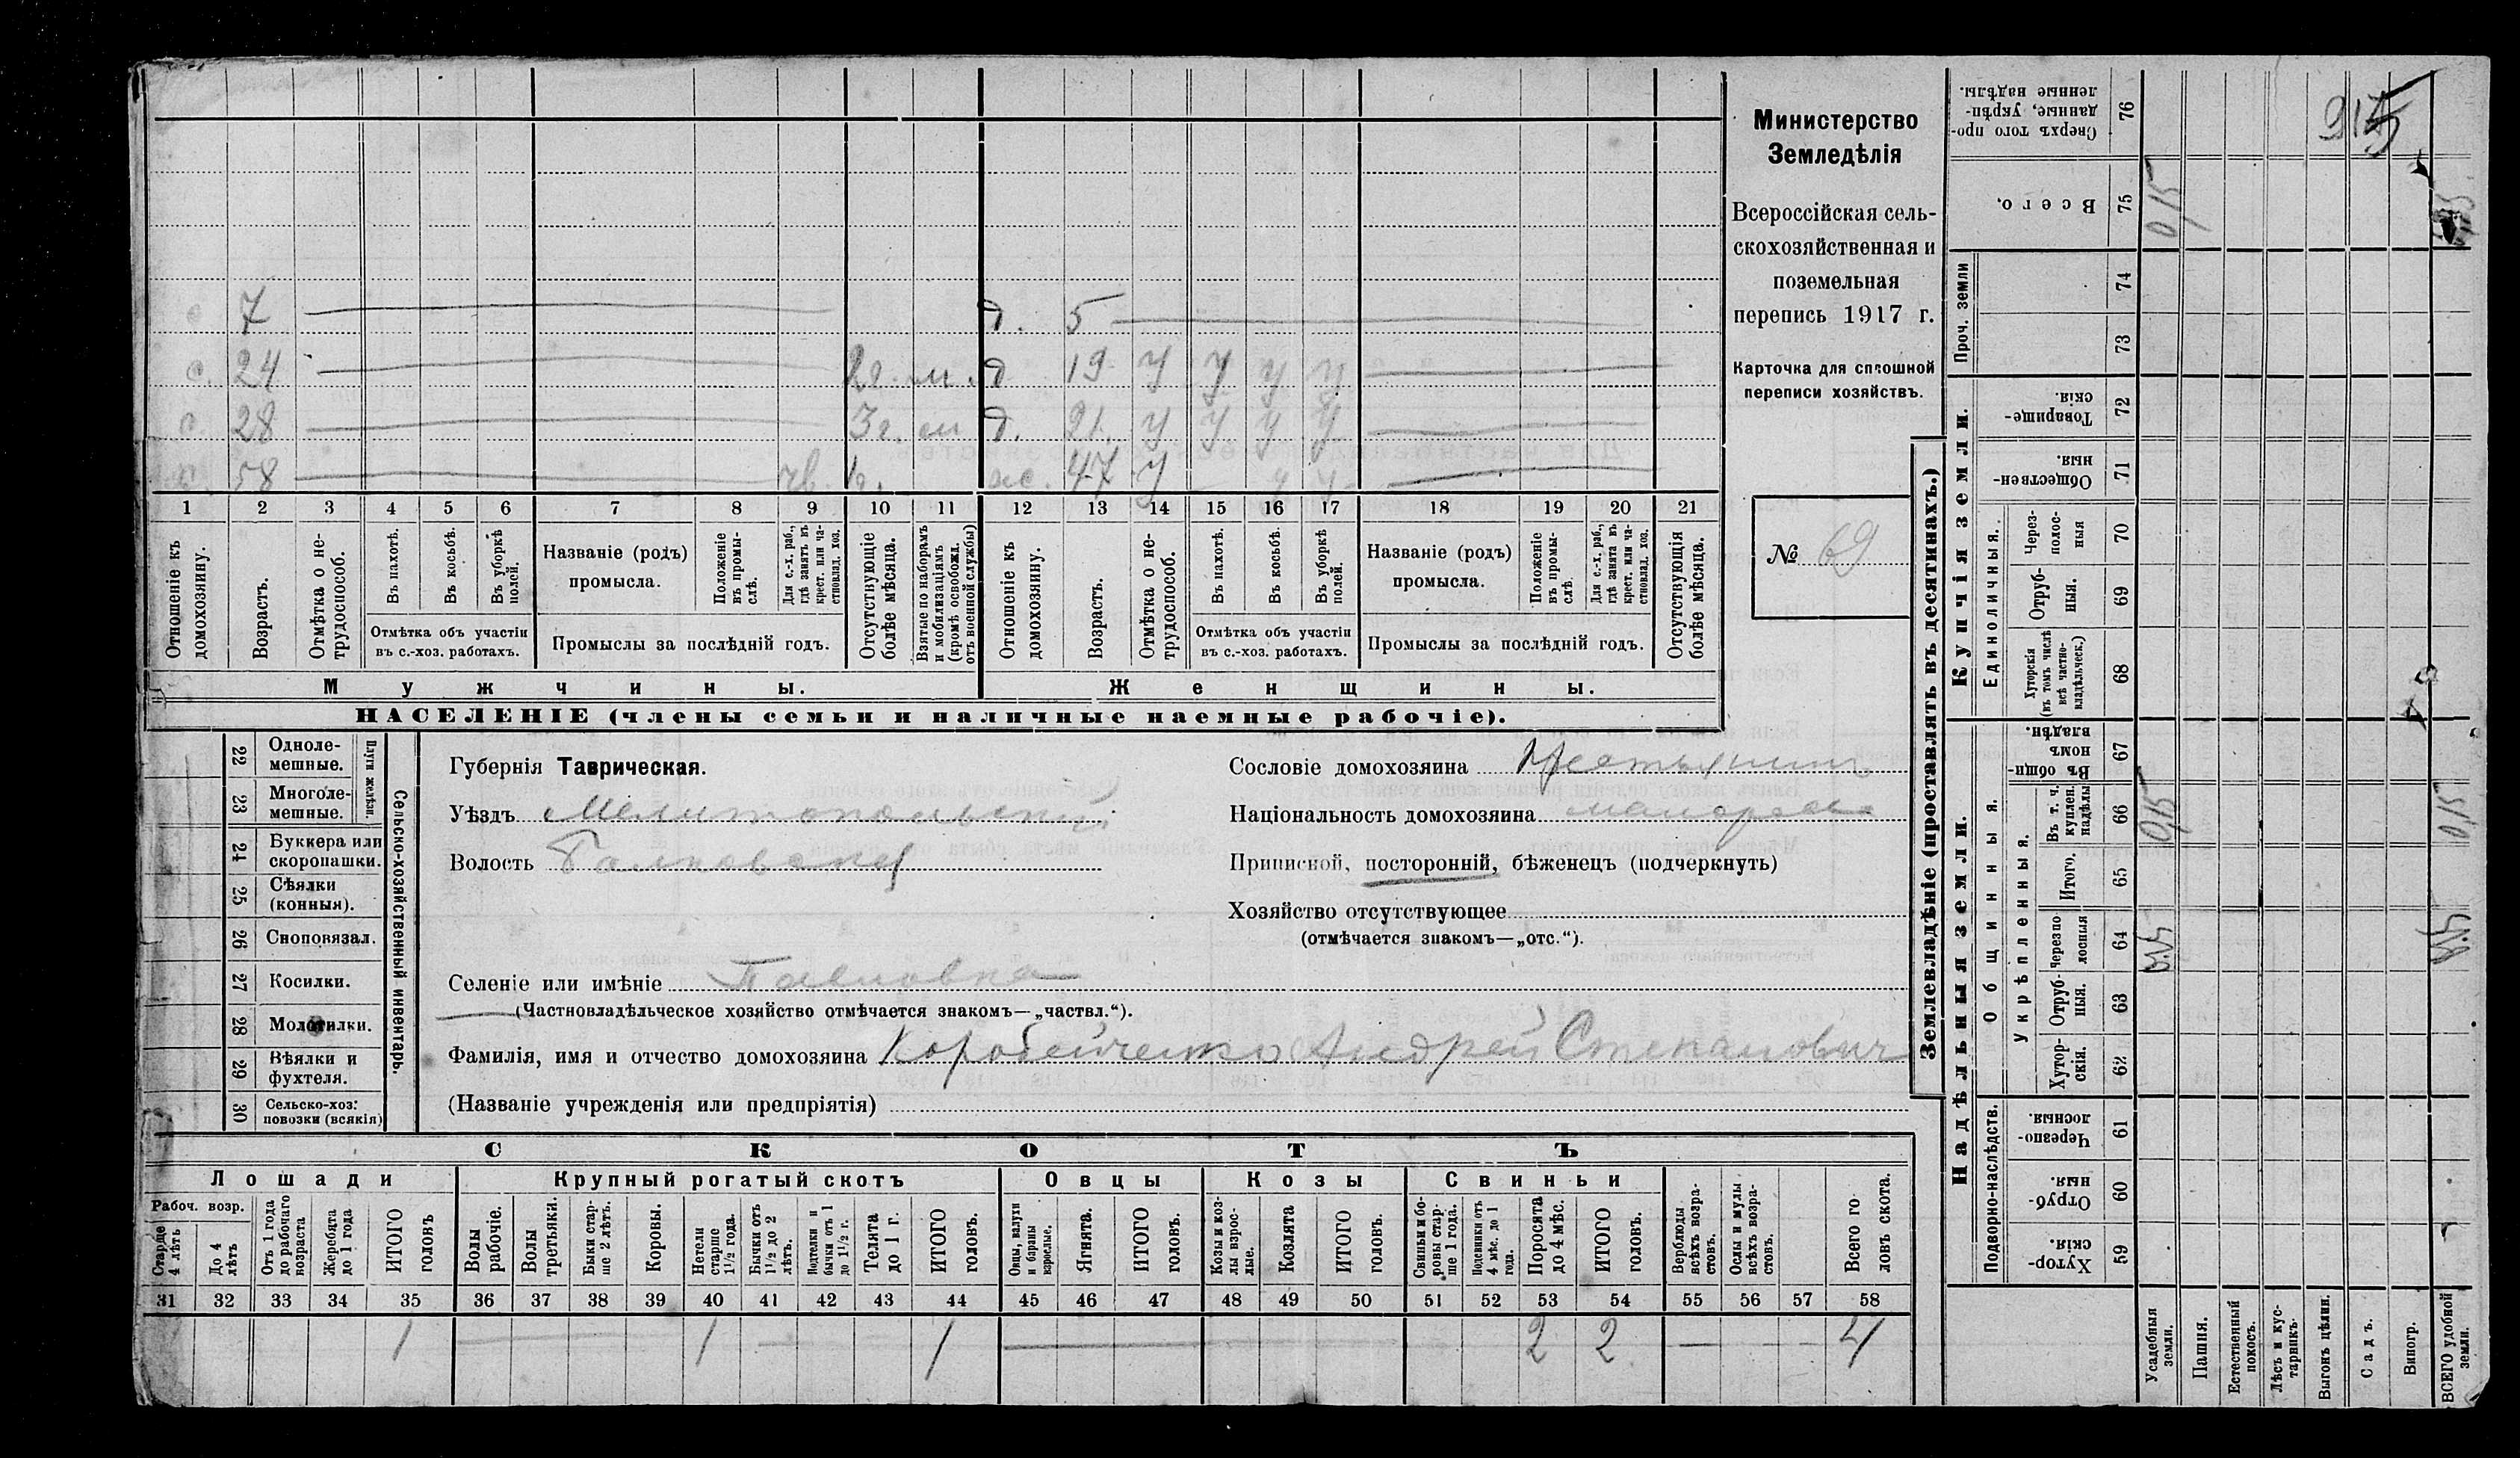 с. 7 д. 5
с. 24 2 г. м. д. 19 у у у у
с. 28 3 г. м д. 21 у у у у
58 ж. 47 у у у
1 2 3 4 5 6 7 8 9 10 11 12 13 14 15 16 17 18 19 20 21
Отношеніе къ домохозяину.
Возрастъ.
Отмѣтка о не-трудоспособ.
Въ пахотѣ.
Въ косьбѣ.
Въ уборкѣ полей.
Отмѣтка объ участіи
въ с.-хоз. работахъ.
Названіе (родъ)
промысла.
Положеніе въ промы-слѣ.
Для с.-х. раб., гдѣ занятъ въ крест. или ча-стновлад. хоз.
Промыслы за послѣдній годъ.
Отсутствующіе болѣе мѣсяца.
Взятые по наборамъ и мобилизаціямъ (кромѣ освобожд. отъ военной службы)
Отношеніе къ домохозяину.
Возрастъ.
Отмѣтка о не-трудоспособ.
Въ пахотѣ.
Въ косьбѣ.
Въ уборкѣ полей.
Отмѣтка объ участіи
въ с.-хоз. работахъ.
Названіе (родъ)
промысла.
Положеніе въ промы-слѣ.
Для с.-х. раб., гдѣ занята въ крест. или ча-стновлад. хоз.
Промыслы за послѣдній годъ.
Отсутствующія болѣе мѣсяца.
Мужчины. Женщины.
НАСЕЛЕНІЕ (члены семьи и наличные наемные рабочіе).
Министерство
Земледѣлія
Всероссійская сель-
скохозяйственная и
поземельная
перепись 1917 г.
Карточка для сплошной
переписи хозяйствъ.
№ 69
Сельско-хозяйственный инвентарь.
Плуги желѣзн.
22 Одноле-
мешные.
23 Многоле-
мешные.
24 Буккера или
скоропашки.
25 Сѣялки
(конныя).
26 Сноповязал.
27 Косилки.
28 Молотилки.
29 Вѣялки и
фухтеля.
30 Сельско-хоз.
повозки (всякія)
Губернія Таврическая.
Уѣздъ Мелитопольскій
Волость
Селеніе или имѣніе Павловка
(Частновладѣльческое хозяйство отмѣчается знакомъ—„частвл.“).
Фамилія, имя и отчество домохозяина Коробейченко Андрей Степанович
(Названіе учрежденія или предпріятія)
Сословіе домохозяина Крестьянин
Національность домохозяина малоросс
Приписной, посторонній, бѣженецъ (подчеркнуть)
Хозяйство отсутствующее
(отмѣчается знакомъ—„отс.“).
СКОТЪ
Лошади Крупный рогатый скотъ Овцы Козы Свиньи
Рабоч. возр.
Старше 4 лѣтъ
До 4 лѣтъ
Отъ 1 года до рабочаго возраста
Жеребята до 1 года
ИТОГО головъ
Волы рабочіе.
Волы третьяки.
Быки стар-ше 2 лѣтъ.
Коровы.
Нетели старше 1 1/2 года.
Бычки отъ 1 1/2 до 2 лѣтъ.
Подтелки и бычки отъ 1 до 1 1/2 г.
Телята до 1 г.
ИТОГО головъ.
Овцы, валухи и бараны взрослые.
Ягнята.
ИТОГО головъ.
Козы и коз-лы взрос-лые.
Козлята
ИТОГО головъ.
Свиньи и бо-ровы стар-ше 1 года.
Подсвинки отъ 4 мѣс. до 1 года.
Поросята до 4 мѣс.
ИТОГО головъ.
Верблюды всѣхъ возра-стовъ.
Ослы и мулы всѣхъ возра-стовъ.
Всего го ловъ скота.
31 32 33 34 35 36 37 38 39 40 41 42 43 44 45 46 47 48 49 50 51 52 53 54 55 56 57 58
1 — 1 — 1 — 2 2 — — 4
Землевладѣніе (проставлять въ десятинахъ.)
Купчія земли.
Надѣльныя земли.
Сверхъ того про-данные, укрѣп-ленные надѣлы. 76
Всего. 75
Проч. земли
74
73
Товарище-скія. 72
Обществен-ныя. 71
Единоличныя.
Через-полос-ныя 70
Отруб-ныя. 69
Хуторскія (въ томъ числѣ всѣ частно-владѣльческ.) 68
Въ общи-номъ владѣн. 67
Общинныя.
Укрѣпленныя.
Въ т. ч. куплен. надѣлы 66
Итого. 65
Черезпо лосныя 64
Отруб-ныя. 63
Хутор-скія. 62
Подворно-наслѣдств.
Черезпо-лосныя. 61
Отруб-ныя. 60
Хутор-скія. 59
Усадебныя земли.
Пашня.
Естественный покосъ.
Лѣсъ и кус-тарникъ.
Выгонъ цѣлин.
Садъ.
Виногр.
ВСЕГО удобной земли.